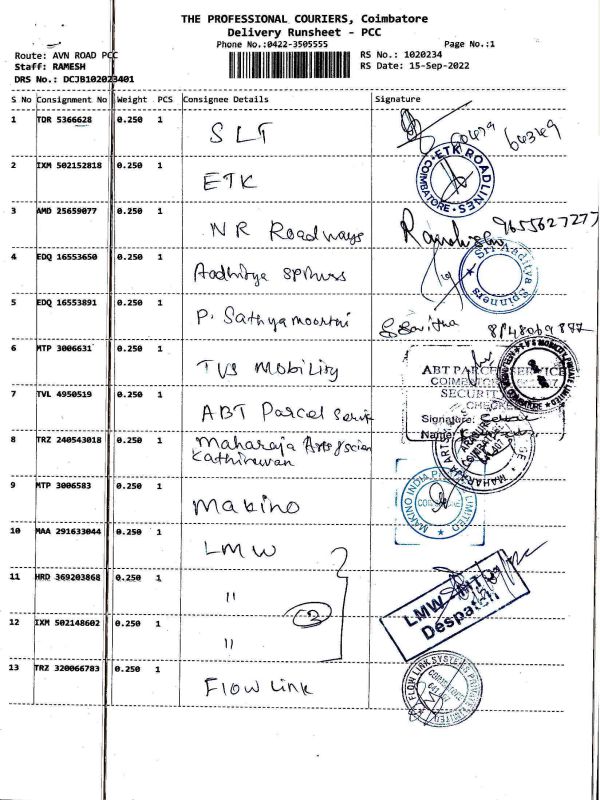 THE PROFESSIONAL COURIERS, Coimbatore
Delivery Runsheet - PCC
Phone No.:0422-3505555
Page No.:1
Route: AVN ROAD PCC
Staff: RAMESH
DRS No.: DCJB102023401
RS No.: 1020234
RS Date: 15-Sep-2022
S No Consignment No Weight PCS Consignee Details Signature
1 TDR 5366628 0.250 1 SLT
2 IXM 502152818 0.250 1 ETK
COIMBATORE ETK ROADLINES
3 AMD 25659077 0.250 1 NR Roadways 9655627277
4 EDQ 16553650 0.250 1 Aadhitya spinners
Sri Aaditya Spinners
5 EDQ 16553891 0.250 1 P. Sathyamoorthi Savitha
6 MTP 3006631 0.250 1 TVS Mobility
7 TVL 4950519 0.250 1 ABT Parcel Servic
ABT PARCEL SERVICE
SECURITY
CHECKED
Signature:
Name:
8 TRZ 240543018 0.250 1 Maharaja Arts & Scien
Kathiravan
MAHARAJA ARTS
9 MTP 3006583 0.250 1 Makino
MAKINO INDIA LIMITED
10 MAA 291633044 0.250 1 LMW
11 HRD 369203868 0.250 1 "
LMW
Despatch
12 IXM 502148602 0.250 1 "
13 TRZ 320066783 0.250 1 Flow Link
FLOW LINK SYSTEMS PRIVATE LIMITED